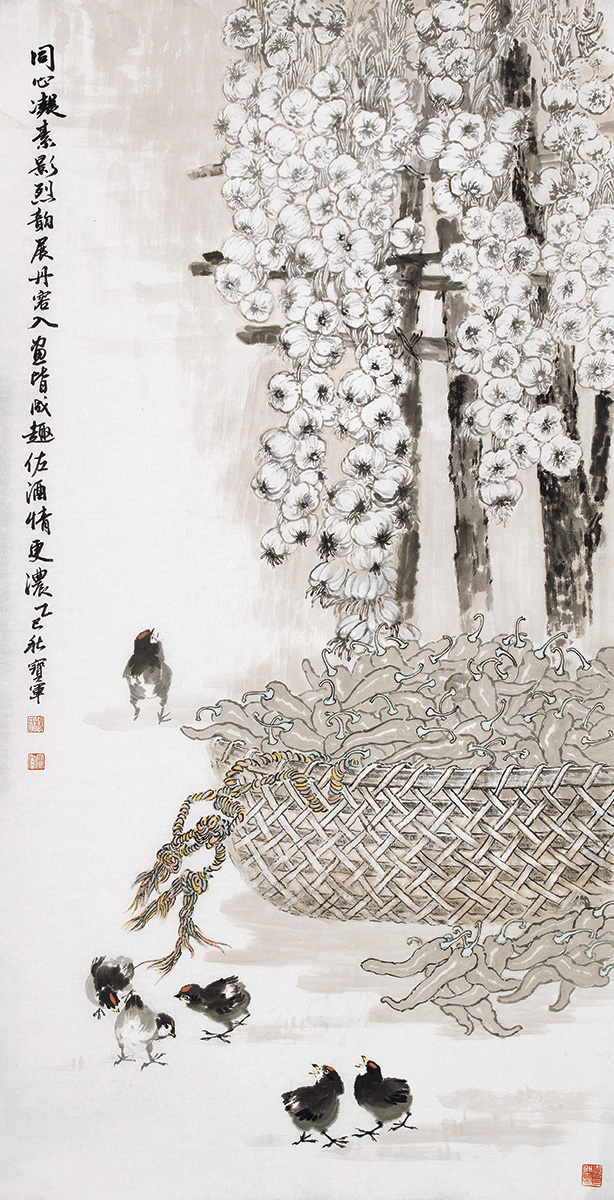 同心凝素影烈韵展丹容入画皆成趣佐酒情更浓乙巳秋宝军